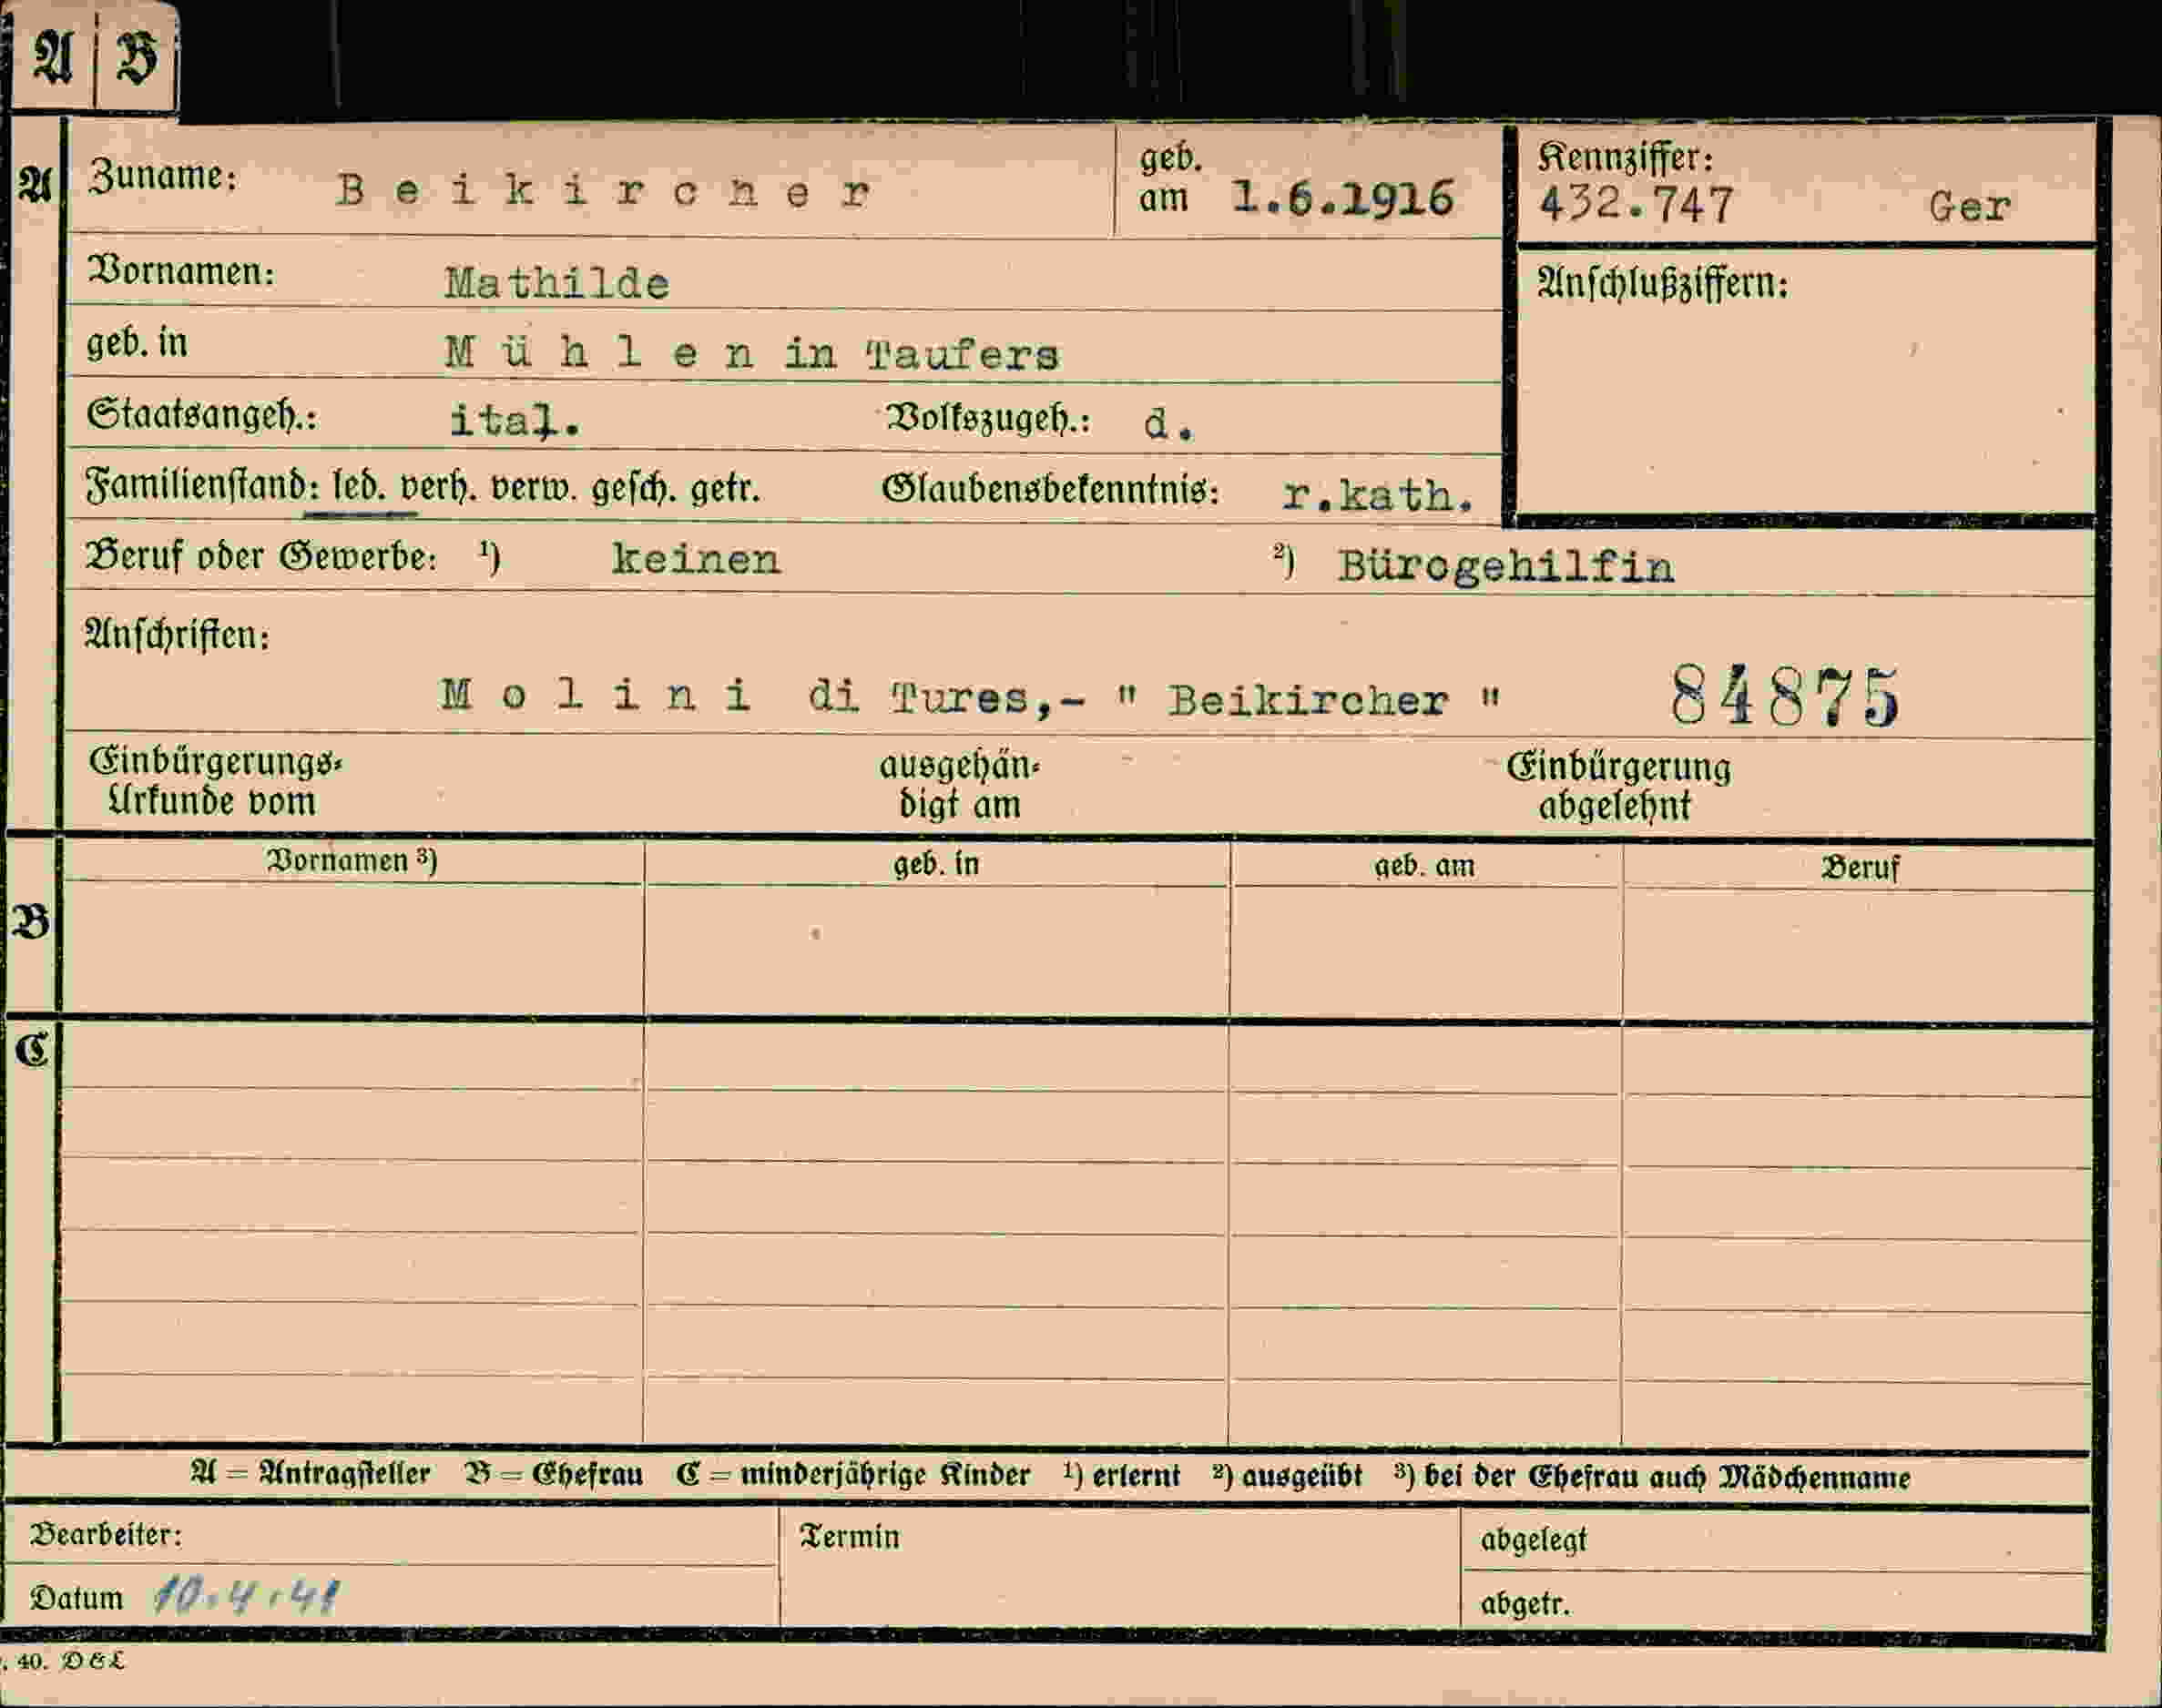 A B
A Zuname: Beikircher geb. am 1.6.1916 Kennziffer: 432.747 Ger
Vornamen: Mathilde Anschlußziffern:
geb. in Mühlen in Taufers
Staatsangeh.: ital. Volkszugeh.: d.
Familienstand: led. verh. verw. gesch. getr. Glaubensbekenntnis: r.kath.
Beruf oder Gewerbe: ¹) keinen ²) Bürogehilfin
Anschriften:
Molini di Tures,- " Beikircher " 84875
Einbürgerungs- ausgehän- Einbürgerung
Urkunde vom digt am abgelehnt
Vornamen ³) geb. in geb. am Beruf
B
C
A = Antragsteller B = Ehefrau C = minderjährige Kinder ¹) erlernt ²) ausgeübt ³) bei der Ehefrau auch Mädchenname
Bearbeiter: Termin abgelegt
Datum 10.4.41 abgetr.
. 40. D & L